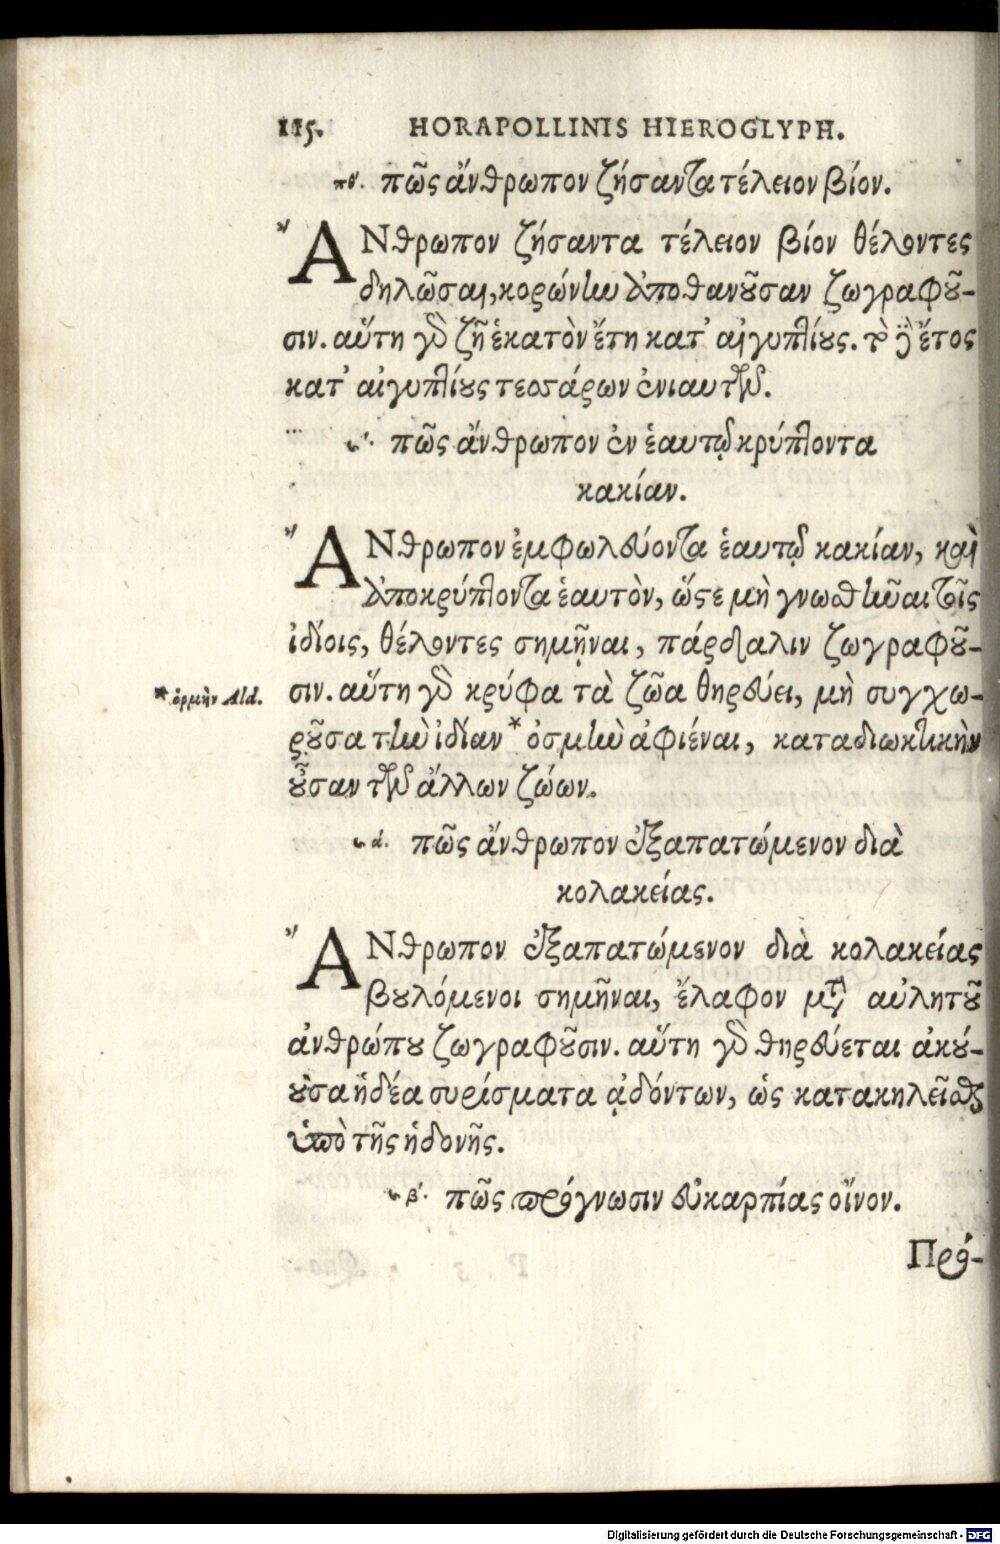 115. HORAPOLLINIS HIEROGLYPH.
πθʹ. πῶς ἄνθρωπον ζήσαντα τέλειον βίον.
ἌΝθρωπον ζήσαντα τέλειον βίον θέλοντες
δηλῶσαι, κορώνην ἀποθανοῦσαν ζωγραφοῦ-
σιν. αὕτη γὰρ ζῇ ἑκατὸν ἔτη κατ' αἰγυπτίους. τὸ δὲ ἔτος
κατ' αἰγυπτίους τεσσάρων ἐνιαυτῶν.
ϟʹ. πῶς ἄνθρωπον ἐν ἑαυτῷ κρύπτοντα
κακίαν.
ἌΝθρωπον ἐμφωλεύοντα ἑαυτῷ κακίαν, καὶ
ἀποκρύπτοντα ἑαυτὸν, ὥστε μὴ γνωσθῆναι τοῖς
ἰδίοις, θέλοντες σημῆναι, πάρδαλιν ζωγραφοῦ-
σιν. αὕτη γὰρ κρύφα τὰ ζῶα θηρεύει, μὴ συγχω-
ροῦσα τὴν ἰδίαν * ὀσμὴν ἀφιέναι, καταδιωκτικὴν
οὖσαν τῶν ἄλλων ζώων.
* ὁρμὴν Ald.
ϟαʹ. πῶς ἄνθρωπον ἐξαπατώμενον διὰ
κολακείας.
ἌΝθρωπον ἐξαπατώμενον διὰ κολακείας
βουλόμενοι σημῆναι, ἔλαφον μετὰ αὐλητοῦ
ἀνθρώπου ζωγραφοῦσιν. αὕτη γὰρ θηρεύεται ἀκού-
ουσα ἡδέα συρίσματα ᾀδόντων, ὡς κατακηλεῖσθαι
ὑπὸ τῆς ἡδονῆς.
ϟβʹ. πῶς πρόγνωσιν εὐκαρπίας οἴνον.
Πρό-
Digitalisierung gefördert durch die Deutsche Forschungsgemeinschaft - DFG